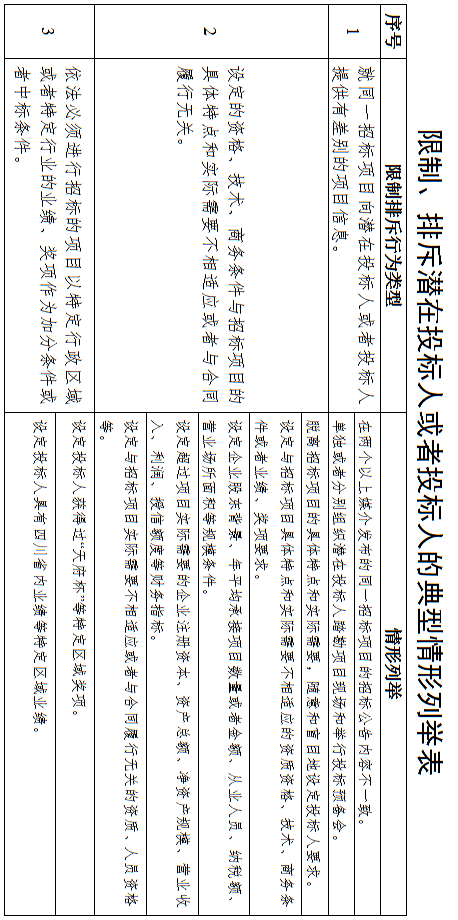 限制、排斥潜在投标人或者投标人的典型情形列举表
序号
限制排斥行为类型
情形列举
1
就同一招标项目向潜在投标人或者投标人
提供有差别的项目信息。
在两个以上媒介发布的同一招标项目的招标公告内容不一致。
单独或者分别组织潜在投标人踏勘项目现场和举行投标预备会。
2
设定的资格、技术、商务条件与招标项目的
具体特点和实际需要不相适应或者与合同
履行无关。
脱离招标项目的具体特点和实际需要，随意和盲目地设定投标人要求。
设定与招标项目具体特点和实际需要不相适应的资质资格、技术、商务条
件或者业绩、奖项要求。
设定企业股东背景、年平均承接项目数量或者金额、从业人员、纳税额、
营业场所面积等规模条件。
设定超过项目实际需要的企业注册资本、资产总额、净资产规模、营业收
入、利润、授信额度等财务指标。
设定与招标项目实际需要不相适应或者与合同履行无关的资质、人员资格
等。
3
依法必须进行招标的项目以特定行政区域
或者特定行业的业绩、奖项作为加分条件或
者中标条件。
设定投标人获得过“天府杯”等特定区域奖项。
设定投标人具有四川省内业绩等特定区域业绩。